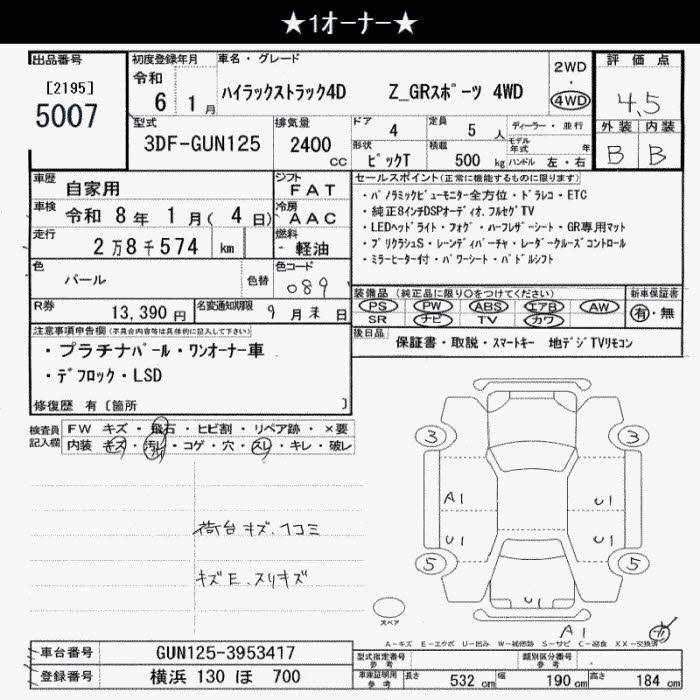 ★1オーナー★
出品番号
[2195]
5007
初度登録年月
令和
6 1月
車名・グレード
ハイラックストラック4D Z_GRスポーツ 4WD
2WD
・
4WD
評価点
4.5
外装 内装
B B
型式
3DF-GUN125
排気量
2400
cc
ドア
4
定員
5 人
ディーラー・並行
形状
ピックT
積載
500 kg
モデル年式 年
ハンドル 左・右
車歴
自家用
シフト
FAT
車検
令和 8年 1月( 4日)
冷房
AAC
走行
2万8千574 km
燃料
軽油
色
パール
色替
色コード
089
R券
13,390 円
名変通知期限
9月末日
セールスポイント(正常に機能するものに限ります)
・パノラミックビューモニター全方位・ドラレコ・ETC
・純正8インチDSPオーディオ.フルセグTV
・LEDヘッドライト・フォグ・ハーフレザーシート・GR専用マット
・プリクラシュS・レーンディパーチャ・レーダークルーズコントロール
・ミラーヒーター付・パワーシート・パドルシフト
装備品 (純正品に限り○をつけてください)
PS PW ABS エアB AW
SR ナビ TV カワ
新車保証書
有・無
後日品
保証書・取説・スマートキー 地デジTVリモコン
注意事項申告欄(不具合内容等は具体的に記入して下さい)
・プラチナパール・ワンオーナー車
・デフロック・LSD
修復歴 有 〔箇所 〕
検査員
記入欄
FW キズ・飛石・ヒビ割・リペア跡・×要
内装 キズ・汚レ・コゲ・穴・スレ・キレ・破レ
荷台キズ.フコミ
キズE.スリキズ
3
3
A1
U1
U1
U1
5
5
U1
スペア
A1
A-キズ E-エクボ U-凹み W-補修跡 S-サビ C-腐食 XX-交換済
車台番号
GUN125-3953417
登録番号
横浜 130 ほ 700
型式指定番号
参考
類別区分番号
参考
車庫証明用
参考
長さ
532 cm
幅
190 cm
高さ
184 cm